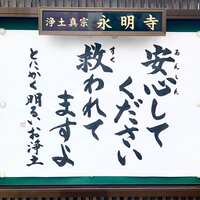 浄土真宗 永明寺
安心して
あんしん
ください
救われて
すく
ますよ
とにかく明るいお浄土